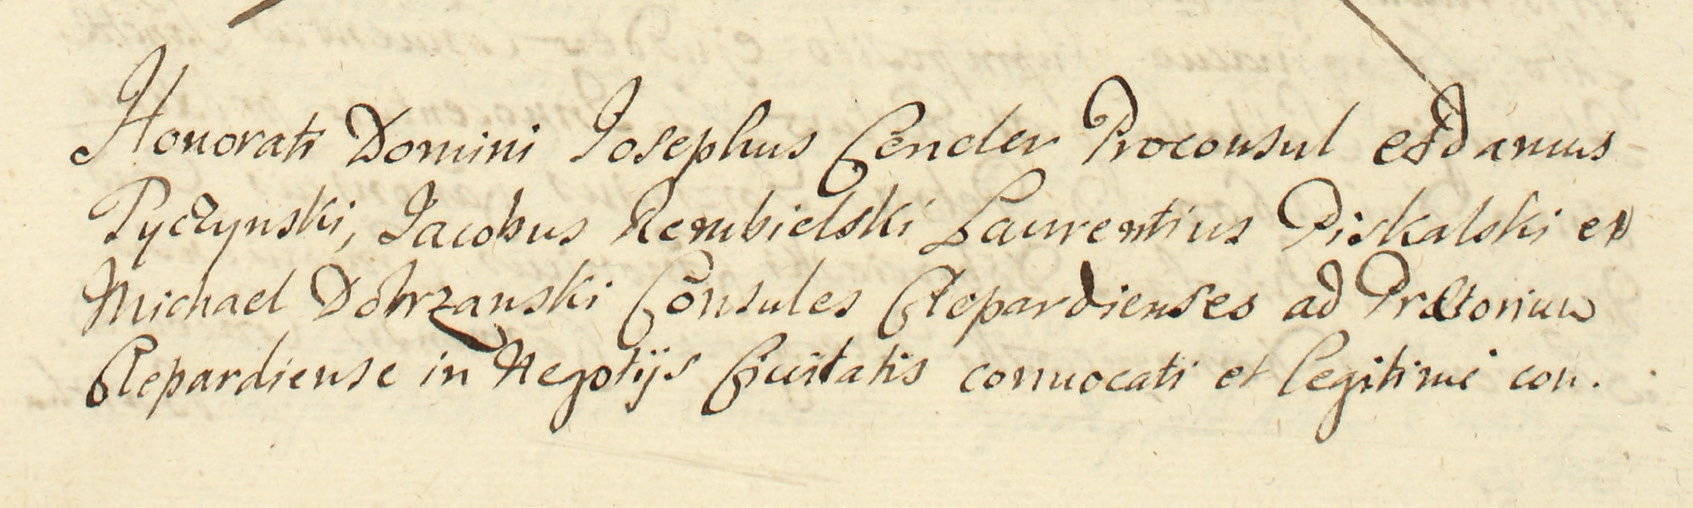 Honorati Domini Josephus Cender Proconsul Adamus
Pyczynski, Jacobus Rembielski Laurentius Piskalski et
Michael Dobrzanski Consules Clepardienses ad Prætorium
Clepardiense in Negotijs Ciuitatis conuocati et legitime con.